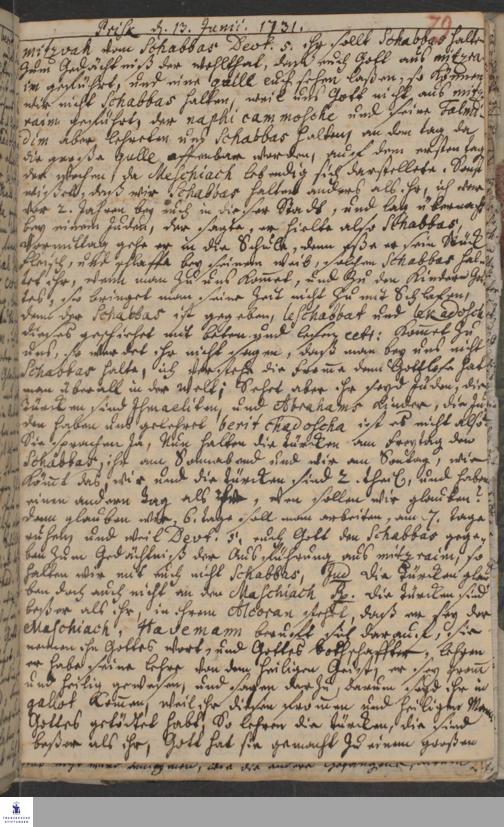 Prisa d. 13. Junii. 1731.
70
mitzvah vom Schabbas Deut. 5. ihr sollt Schabbas halten
zum Gedächtniß der Wohlthat, daß euch Gott aus mitzra-
im geführet, und eine gulle laßen, so können
wir nicht Schabbas halten, weil uns Gott nicht aus mitz-
raim geführet, der naphi cammosche und seine Talmi-
dim aber lehreten uns Schabbas halten, an dem tag da
die große gulle offenbar worden, auf dem ersten tag
der wochen, da Maschiach lebendig sich darstellete. Sonst
wisset, daß wir Schabbas halten anders als ihr, ich war
vor 2. Jahren bey euch in dieser Stadt, und lag
bey einem Juden, der sagte, er hielte also Schabbas,
Vormittag gehe er in die Schule, denn eße er sein Stück
fleisch, und schlaffe bey seinem weib, solchen Schabbas hal-
tet ihr, wenn man zu uns kommet, und zu den Kindern Got-
tes, so bringet man seine Zeit nicht zu mit Schlafen,
denn der Schabbas ist gegeben, leschabbat und lekadosch
dieses geschiehet mit beten und lesen cett: kommet zu
uns, so werdet ihr nicht sagen, daß man bey uns nicht
Schabbas halte, ich verstehe die fromme denn Gottlose hat
man überall in der welt, Sehet aber ihr seyd Juden, die
türcken sind Ismaeliten, und Abrahams Kinder, die Ju-
den haben uns gelehret berit chadascha ist es nicht also
Sie sprachen Ja, Nun halten die türcken am freytag den
Schabbas, ihr am Sonnabend und wir am Sontag, wie
kommt das, wir und die türcken sind 2. theil, und haben
einen andern tag als ihr, wem sollen wir glauben?
denn glauben wir, 6. tage soll man arbeiten, am 7. tage
ruhen, und weil Deut. 5. euch Gott den Schabbas gege-
ben zum Gedächtniß der Ausführung aus mitzraim, so
halten wir mit euch nicht Schabbas, Jud die türcken glau-
ben doch auch nicht an den Maschiach. die türcken sind
beßer als ihr, in ihrem Alcoran stehet, daß er sey der
Maschiach, beruft sich darauf, sie
nennen ihn Gottes wort, und Gottes bottschaffter, lehren
er habe seine lehre von dem heiligen Geist, er sey fromm
und heilig gewesen, und sagen darzu, darum seyd ihr in
galot kommen, weil ihr diesen frommen und heiligen Mann
Gottes getödtet habt. So lehren die türcken, die sind
beßer als ihr, Gott hat sie gemacht zu einem großen
FRANCKESCHE
STIFTUNGEN